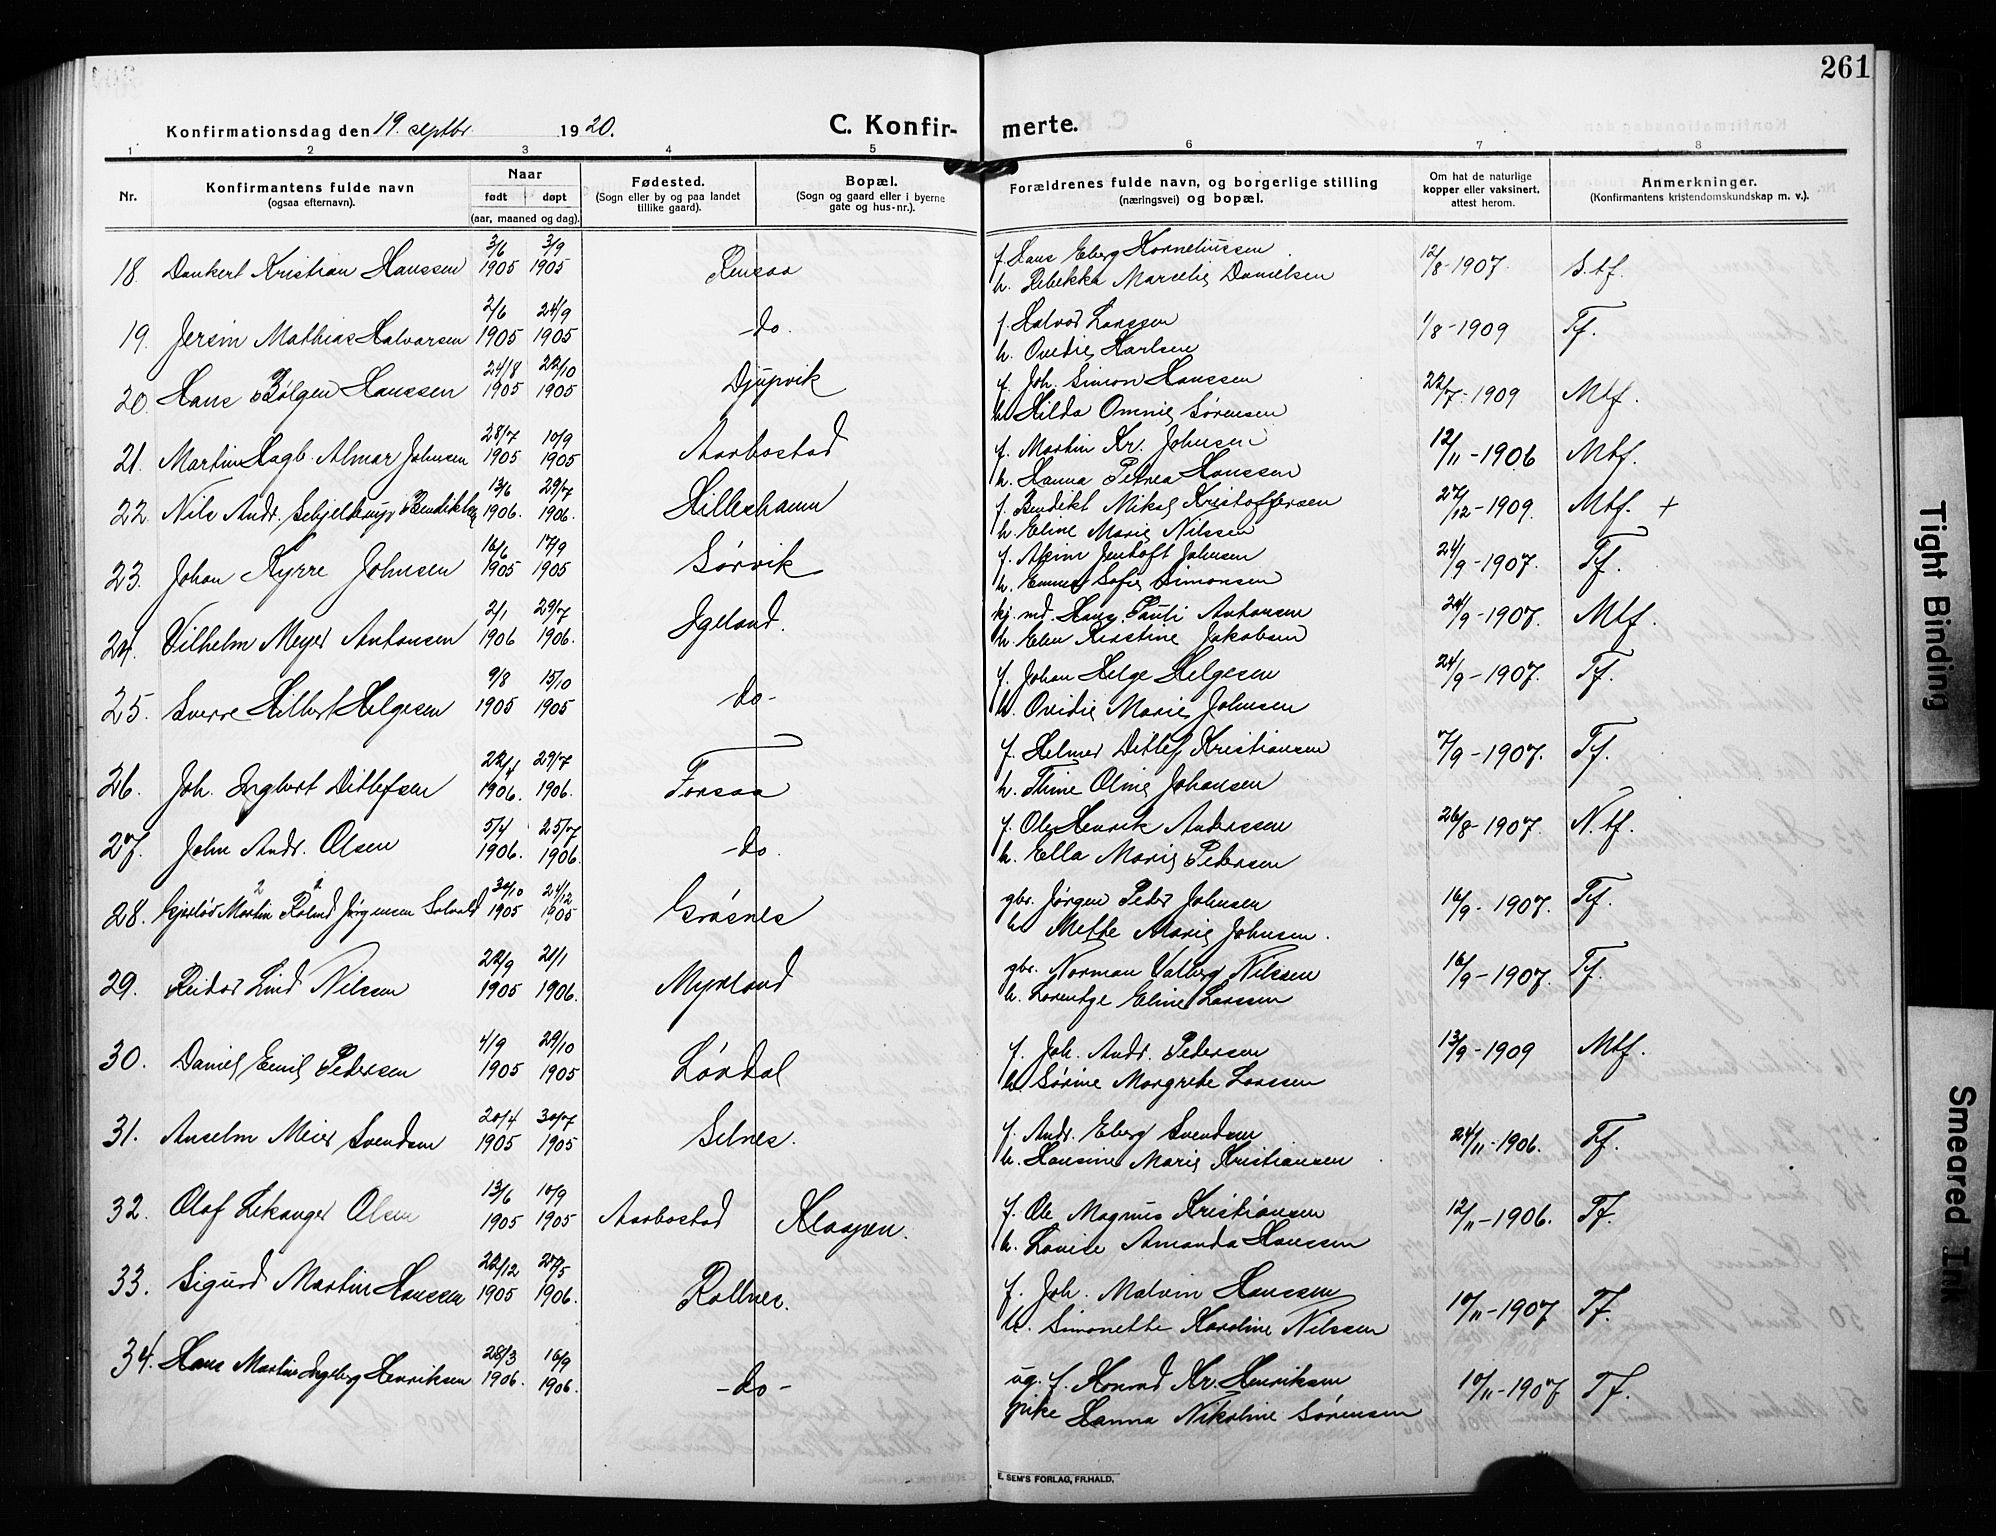 261
Konfirmationsdag den 19. septbr 1920. C. Konfirmerte.
1 2 3 4 5 6 7 8
Nr. Konfirmantens fulde navn (ogsaa efternavn). Naar født døpt (aar, maaned og dag). Fødested. (Sogn eller by og paa landet tillike gaard). Bopæl. (Sogn og gaard eller i byerne gate og hus-nr.). Forældrenes fulde navn, og borgerlige stilling (næringsvei) og bopæl. Om hat de naturlige kopper eller vaksinert, attest herom. Anmerkninger. (Konfirmantens kristendomskundskap m. v.).
18. Dankert Kristian Hanssen 3/6 1905 3/9 1905 Rensaa f. Hans Eberg Korneliussen 12/8-1907. S.tf.
h. Rebekka Marselie Danielsen
19. Jersin Mathias Halvorsen 2/6 1905 24/9 1905 -do. f. Halvor Larssen 1/8-1909 Tf.
h. Ovedie Karlsen
20. Hans Bølgen Hanssen 24/8 1905 22/10 1905 Djupvik f. Joh. Simon Hanssen 22/7-1909 Mtf.
h. Hilda Omnie Sørensen
21. Martin Hagb. Almar Johnsen 28/7 1905 10/9 1905 Aarbostad f. Martin Kr. Johnsen 12/11-1906 Mtf.
h. Hanna Petrea Hanssen
22. Nils Andr. Schjeldrup Bendiktsen 13/6 1906. 29/7 1906. Hilleshamn f. Bendikt Mikal Kristoffersen 27/12-1909. Mtf. +
h. Eline Marie Nilssen
23. Johan Kyrre Johnsen 16/6 1905 17/9 1905 Sørvik f. Jentoft Johnsen 24/9-1907. Tf.
h. Sofie Simonsen
24. Vilhelm Meyer Antonsen 2/1 1906 29/7 1906. Igeland. kj. md. Hans Pauli Antonsen 24/9-1907. Mtf.
h. Elen Kristine Jakobsen
25. Sverre Hilbert Helgesen 9/8 1905 15/10 1905 -do- f. Johan Helge Helgesen 24/9-1907. Tf.
h. Ovidie Marie Johnsen
26. Joh. Ingbert Ditlefsen 22/4 1906. 29/7 1906. Forsaa f. Helmer Ditlef Kristiansen 7/9-1907. Tf.
h. Thine Oline Johansen
27. John Andr. Olsen 5/4 1906. 25/7 1906. -do. f. Ole Henrik Anderssen 26/8-1907. N.tf.
h. Ella Marie Pedersen
28. Martin Jørgensen Solvold 30/10 1905 24/12 1905 Grøsnes gbr. Jørgen Peder Johnsen 16/9-1907. Tf.
h. Mette Marie Johnsen.
29. Reidar Lind Nilssen 22/9 1905 21/1 1906. Myrland gbr. Norman Valberg Nilssen 16/9-1907. Tf.
h. Lorentze Eline Larssen
30. Daniel Emil Pedersen 4/9 1905 29/10 1905 Løvdal f. Joh. Andr. Pedersen 13/9-1909 Mtf.
h. Sørine Margrete Larssen
31. Anselm Meier Svendsen 20/4 1905 30/7 1905 Selnes. f. Andr. Eberg Svendsen 24/11-1906. Tf.
h. Hansine Marie Kristiansen
32. Olaf Lekanger Olsen 13/6 1905 10/9 1905 Aarbostad Klaapen. f. Ole Magnus Kristiansen 12/11-1906. Tf.
h. Lovise Amanda Hanssen
33. Sigurd Martin Hanssen 22/12 1905 27/5 1906. Rollnes. f. Joh. Malvin Hanssen 10/11-1907 Tf.
h. Simonette Karoline Nilssen
34. Hans Martin Ingeberg Henriksen 28/3 1906. 16/9 1906. -do- ug. f. Konrad Kr. Henriksen 10/11-1907 Tf.
pike Hanna Nikoline Sørensen
E. SEM'S FORLAG, FR.HALD.
Tight Binding
Smeared Ink